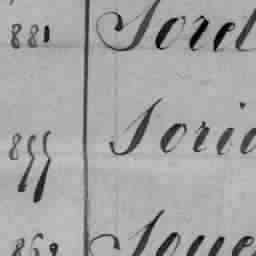 881 Sord
855 Sorid
862 Soue